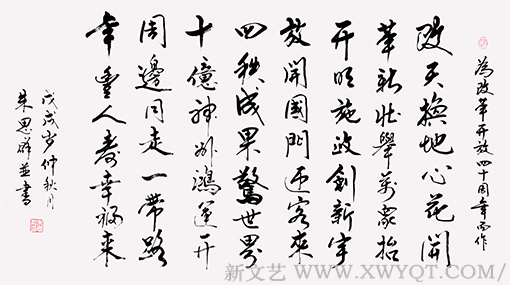 為改革开放四十周年而作
改天換地心花開
革新壯舉萬眾抬
开明施政創新宇
放開國門迎客來
四秩成果驚世界
十億神州鴻運开
周邊同走一帶路
年豐人壽幸福來
戊戌岁仲秋月
朱思群並書
新文艺 WWW.XWYQT.COM/